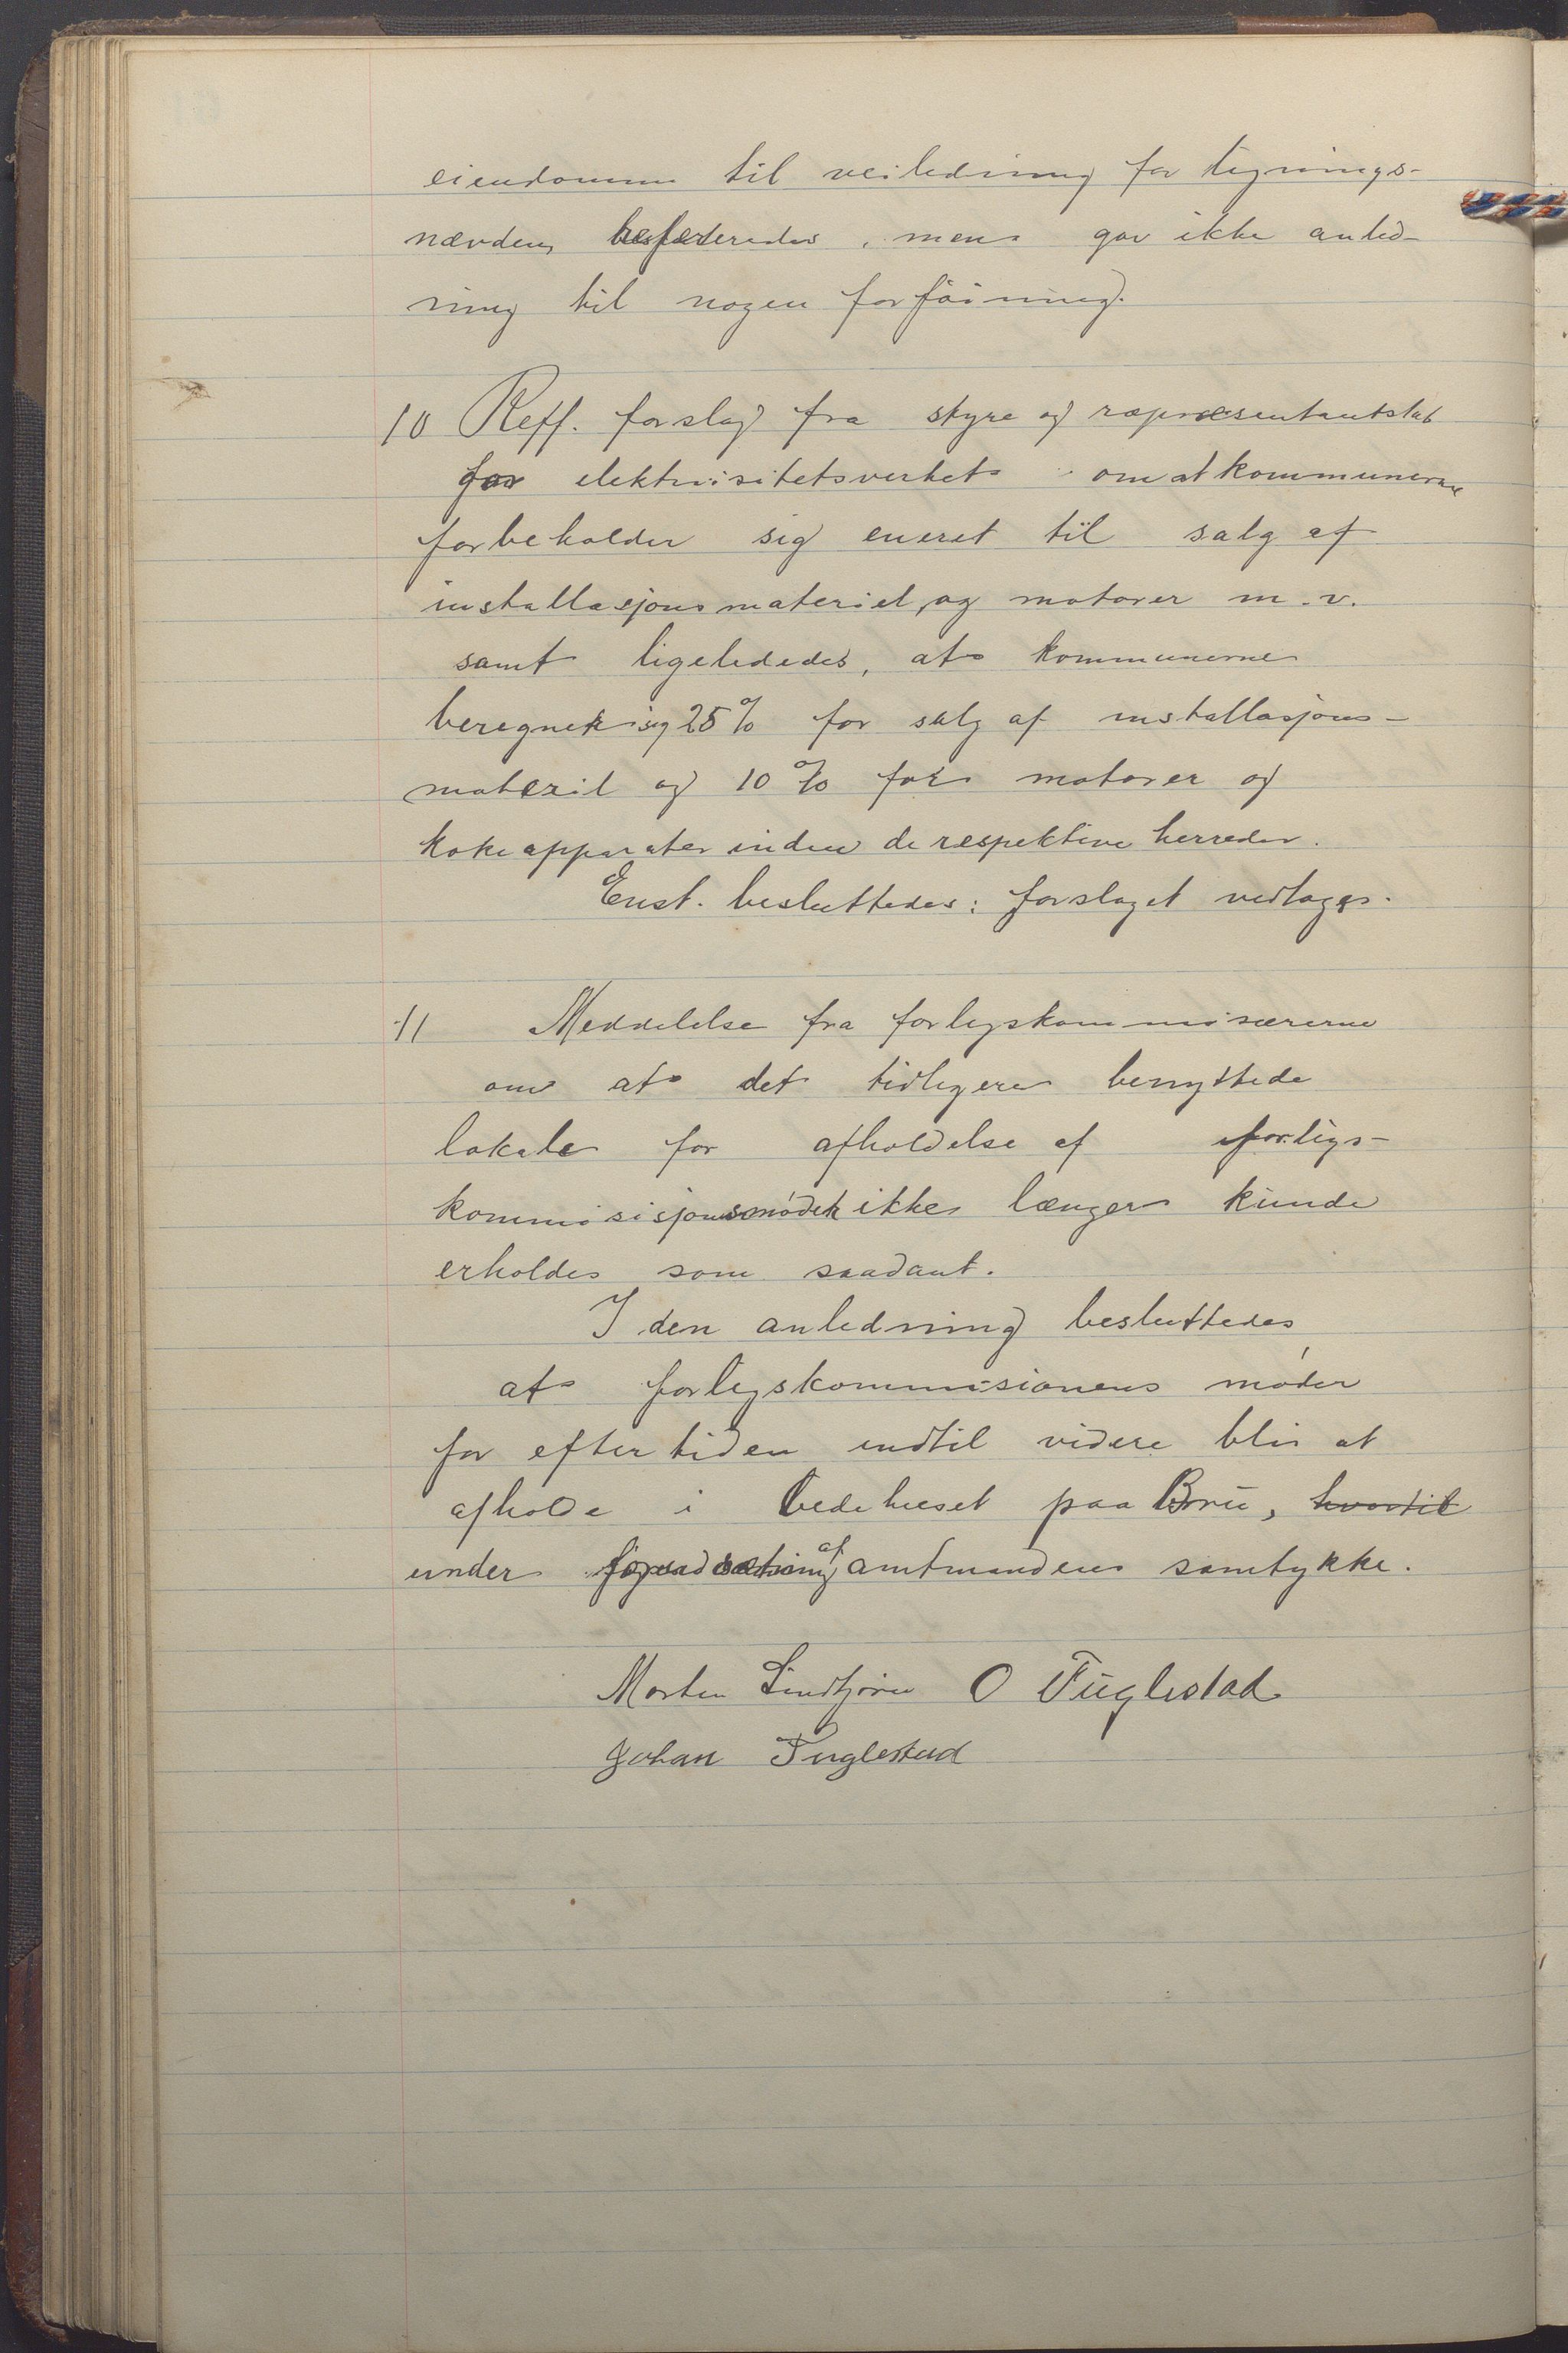 eiendomme til veiledning for lignings-
nævden, refereredes, men gav ikke anled-
ning til nogen forføining.
10 Reff. forslag fra styre og representantskab
for elektrisitetsverket om at kommunerne
forbeholder sig eneret til salg af
installasjonsmateriel, og motorer m.v.
samt ligeledes, at kommunerne
beregner sig 25% for salg af installasjons-
materiel og 10% for motorer og
kokeapparater inden de respektive herreder.
Enst. besluttedes: forslaget vedtages.
11 Meddelelse fra forligskommisærerne
om at det tidligere benyttede
lokale for afholdelse af forligs-
kommisisjonsmøder ikke længer kunde
erholdes som saadant.
I den anledning besluttedes,
at forligskommisionens møder
for eftertiden indtil videre blir at
afholde i bedehuset paa Bru, hvortil
under forudsætning af amtmandens samtykke.
Morten Lindtjørn O Fuglestad
Johan Fuglestad